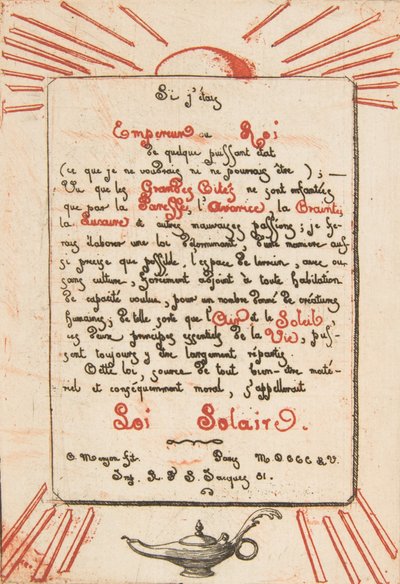 Si j'étais
Empereur ou Roi
de quelque puissant état
(ce que je ne voudrais ni ne pourrais être) ; —
Vu que les Grandes Cités ne sont enfantées
que par la Paresse, l'Avarice, la Crainte,
la Luxure et autres mauvaises passions; je fe-
rais élaborer une loi déterminant, d'une manière aus-
si précise que possible, l'espace de terrain, avec ou
sans culture, forcément adjoint à toute habitation
de capacité voulue, pour un nombre donné de créatures
humaines; de telle sorte que l'Air et le Soleil
ces deux principes essentiels de la Vie, puis-
sent toujours y être largement répartis.
Cette loi, source de tout bien-être maté-
riel et conséquemment moral, s'appellerait
Loi Solaire.
C. Meryon ft. Paris
Imp. R. St. Jacques 81.